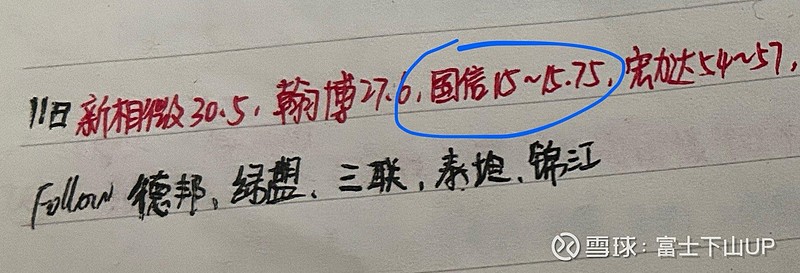 11日 新相微30.5，翰博27.6，国信15~15.75，宏力达54~57，
Follow 德邦、绿盟、三联，泰坦、锦江
雪球：富士下山UP